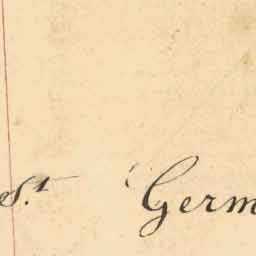 St. Germ